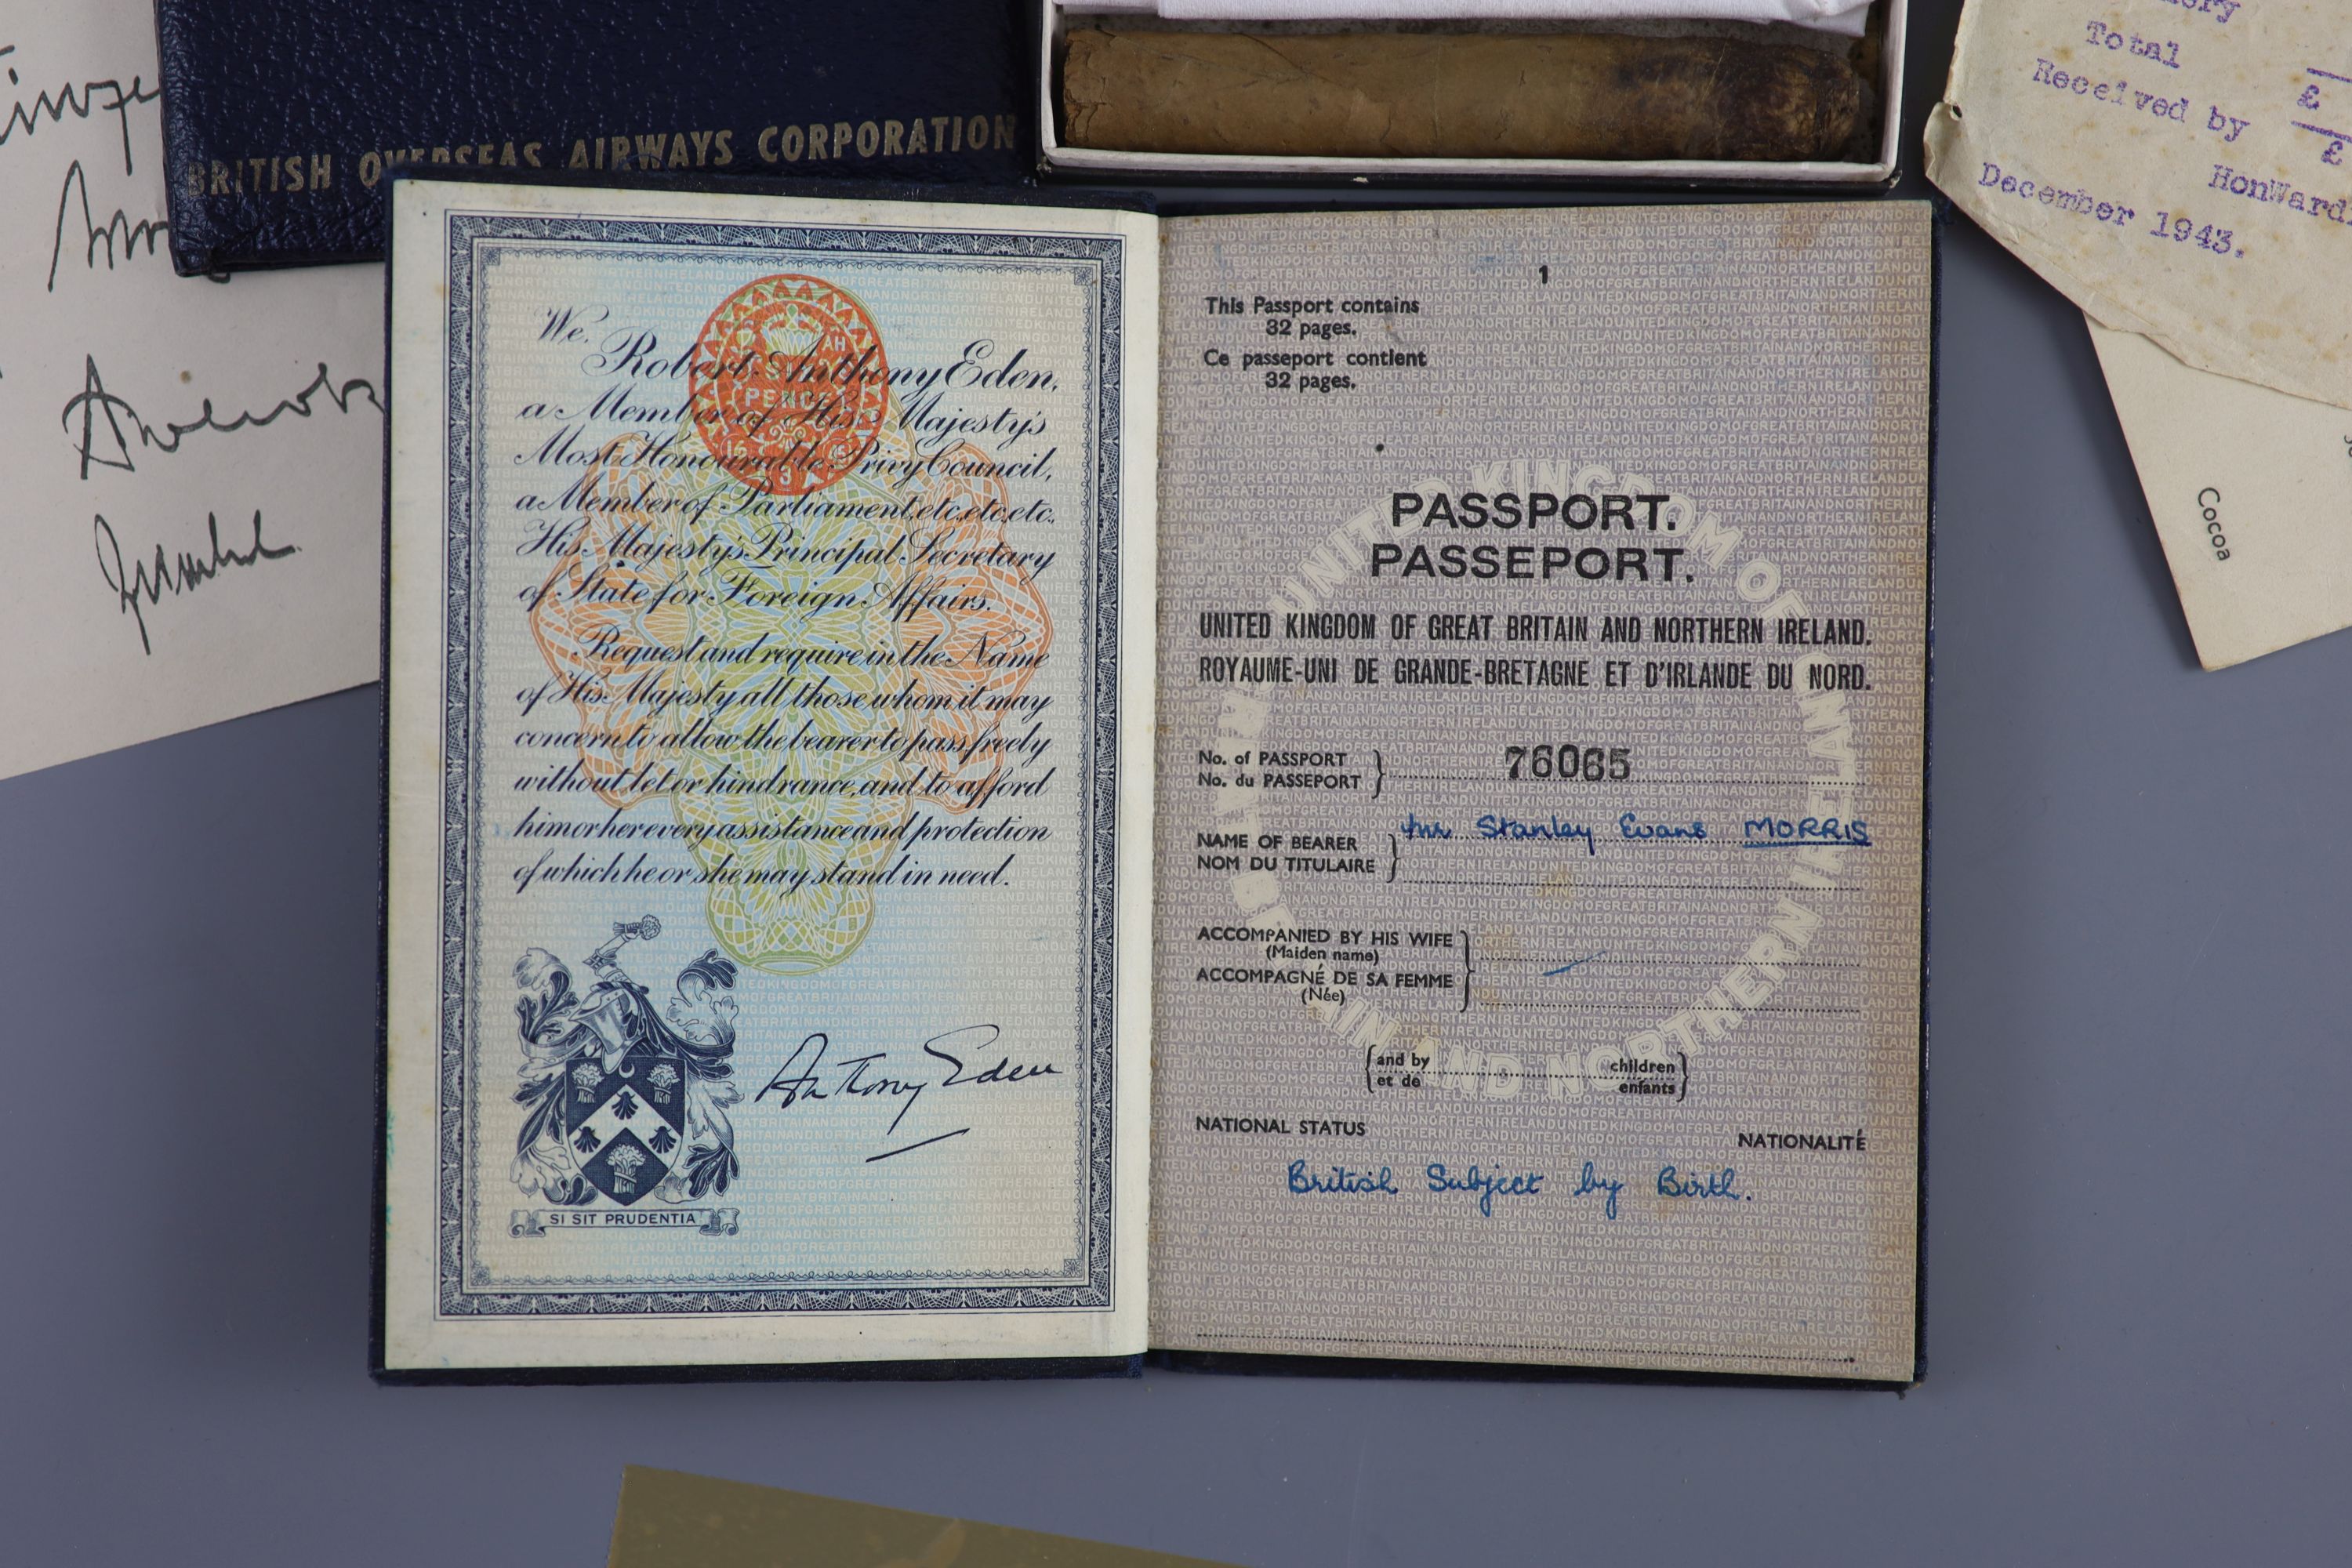 BRITISH OVERSEAS AIRWAYS CORPORATION
Total
£
Received by
£
December 1943.
Cocoa
AH
PENCE
We,
Robert Anthony Eden,
a Member of His Majesty's
Most Honourable Privy Council,
a Member of Parliament, etc, etc, etc.
His Majesty's Principal Secretary
of State for Foreign Affairs.
Request and require in the Name
of His Majesty all those whom it may
concern to allow the bearer to pass freely
without let or hindrance, and to afford
him or her every assistance and protection
of which he or she may stand in need.
Anthony Eden
SI SIT PRUDENTIA
1
This Passport contains
32 pages.
Ce passeport contient
32 pages.
PASSPORT.
PASSEPORT.
UNITED KINGDOM OF GREAT BRITAIN AND NORTHERN IRELAND.
ROYAUME-UNI DE GRANDE-BRETAGNE ET D'IRLANDE DU NORD.
No. of PASSPORT
No. du PASSEPORT
76065
NAME OF BEARER
NOM DU TITULAIRE
Mr Stanley Evans MORRIS
ACCOMPANIED BY HIS WIFE
(Maiden name)
ACCOMPAGNÉ DE SA FEMME
(Née)
and by children
et de enfants
NATIONAL STATUS NATIONALITÉ
British Subject by Birth.